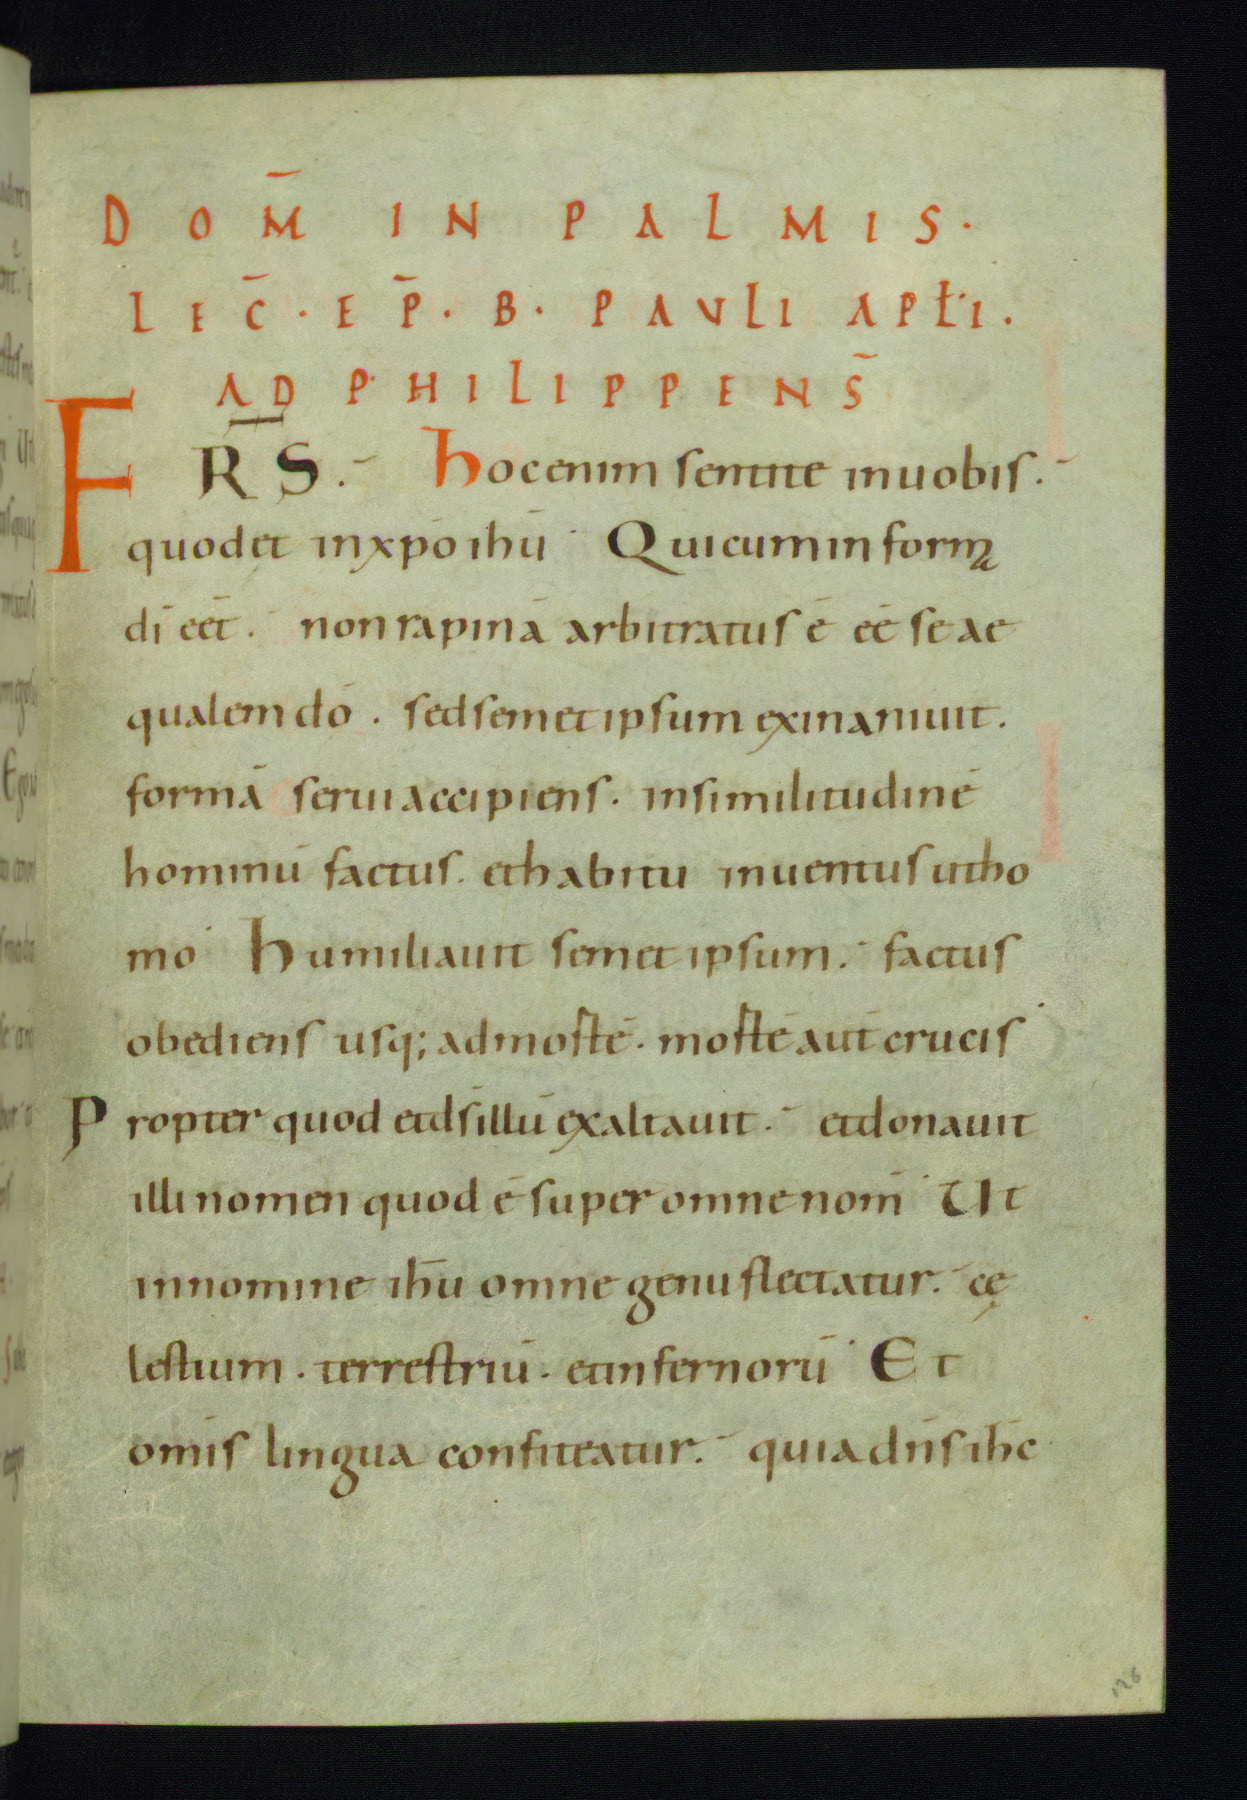 DOM̄ IN PALMIS.
LEC̄. EP̄. B. PAVLI APŁI.
AD PHILIPPENS̄
FR̄S. hoc enim sentite in uobis.
quod et in xp̄o ihū Qui cum in formę
dī eēt. non rapinā arbitratus ē eē se ae
qualem dō. sed semet ipsum exinaniuit.
formā serui accipiens. in similitudinē
hominū factus. et habitu inuentus ut ho
mo humiliauit semet ipsum. factus
obediens usq; ad mortē. mortē aūt crucis
Propter quod et d̄s illū exaltauit. et donauit
illi nomen quod ē super omne nom̄ Ut
in nomine ihū omne genu flectatur. cę
lestium. terrestriū. et infernorū Et
om̄is lingua confiteatur. quia dn̄s ih̄c
126